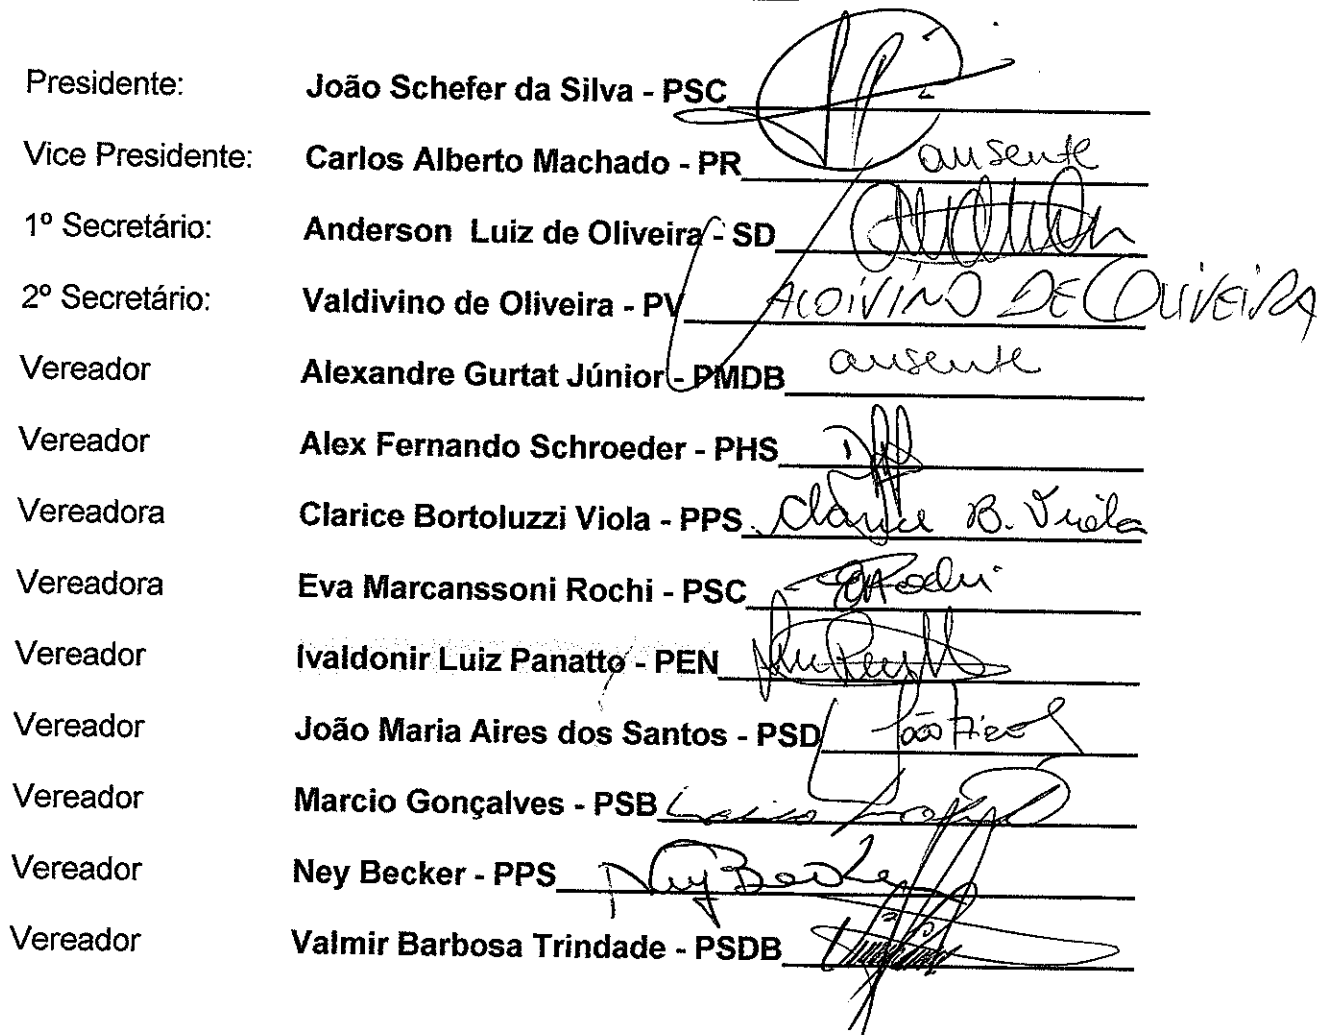 Presidente: João Schefer da Silva - PSC
Vice Presidente: Carlos Alberto Machado - PR ausente
1º Secretário: Anderson Luiz de Oliveira - SD
2º Secretário: Valdivino de Oliveira - PV DE OLIVEIRA
Vereador Alexandre Gurtat Júnior - PMDB ausente
Vereador Alex Fernando Schroeder - PHS
Vereadora Clarice Bortoluzzi Viola - PPS Clarice B. Viola
Vereadora Eva Marcanssoni Rochi - PSC Rochi
Vereador Ivaldonir Luiz Panatto - PEN
Vereador João Maria Aires dos Santos - PSD
Vereador Marcio Gonçalves - PSB
Vereador Ney Becker - PPS Ney Becker
Vereador Valmir Barbosa Trindade - PSDB